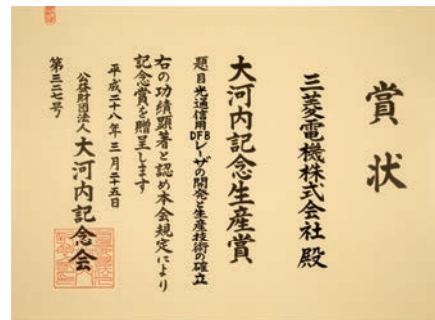 賞状
三菱電機株式会社 殿
大河内記念生産賞
題目 光通信用DFBレーザの開発と生産技術の確立
右の功績顕著と認め本会規定により
記念賞を贈呈します
平成二十八年三月二十五日
公益財団法人 大河内記念会
第三二七号